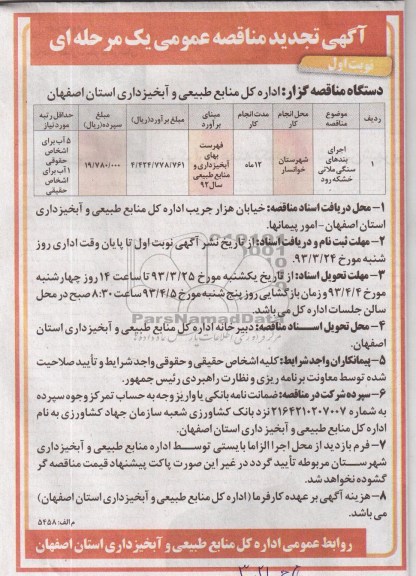 آگهی تجدید مناقصه عمومی یک مرحله ای
نوبت اول
دستگاه مناقصه گزار: اداره کل منابع طبیعی و آبخیزداری استان اصفهان
ردیف
موضوع مناقصه
محل انجام کار
مدت انجام کار
مبنای برآورد
مبلغ برآورد(ریال)
مبلغ سپرده(ریال)
حداقل رتبه مورد نیاز
۱
اجرای بندهای سنگی ملاتی خشکه رود
شهرستان خوانسار
۱۲ماه
فهرست بهای آبخیزداری و منابع طبیعی سال۹۲
۴/۴۲۴/۷۷۸/۷۶۱
۱۹/۷۸۰/۰۰۰
۵ آب برای اشخاص حقوقی
۱ آب برای اشخاص حقیقی
۱- محل دریافت اسناد مناقصه: خیابان هزار جریب اداره کل منابع طبیعی و آبخیزداری
استان اصفهان - امور پیمانها.
۲- مهلت ثبت نام و دریافت اسناد: از تاریخ نشر آگهی نوبت اول تا پایان وقت اداری روز
شنبه مورخ ۹۳/۳/۲۴.
۳- مهلت تحویل اسناد: از تاریخ یکشنبه مورخ ۹۳/۳/۲۵ تا ساعت ۱۴ روز چهارشنبه
مورخ ۹۳/۴/۴ و زمان بازگشایی روز پنج شنبه مورخ ۹۳/۴/۵ ساعت ۸:۳۰ صبح در محل
سالن جلسات اداره کل می باشد.
ParsNamadData
۴- محل تحویل اسناد مناقصه: دبیرخانه اداره کل منابع طبیعی و آبخیزداری استان
اصفهان.
۵- پیمانکاران واجد شرایط: کلیه اشخاص حقیقی و حقوقی واجد شرایط و تأیید صلاحیت
شده توسط معاونت برنامه ریزی و نظارت راهبردی رئیس جمهور.
۶- سپرده شرکت در مناقصه: ضمانت نامه بانکی یا واریز وجه به حساب تمرکز وجوه سپرده
به شماره ۲۱۶۴۲۱۰۲۰۷۰۰۷ نزد بانک کشاورزی شعبه سازمان جهاد کشاورزی به نام
اداره کل منابع طبیعی و آبخیزداری استان اصفهان.
۷- فرم بازدید از محل اجرا الزاما بایستی توسط اداره منابع طبیعی و آبخیزداری
شهرستان مربوطه تأیید گردد در غیر این صورت پاکت پیشنهاد قیمت مناقصه گر
گشوده نخواهد شد.
۸- هزینه آگهی بر عهده کارفرما (اداره کل منابع طبیعی و آبخیزداری استان اصفهان)
می باشد.
م الف: ۵۴۵۸
روابط عمومی اداره کل منابع طبیعی و آبخیزداری استان اصفهان